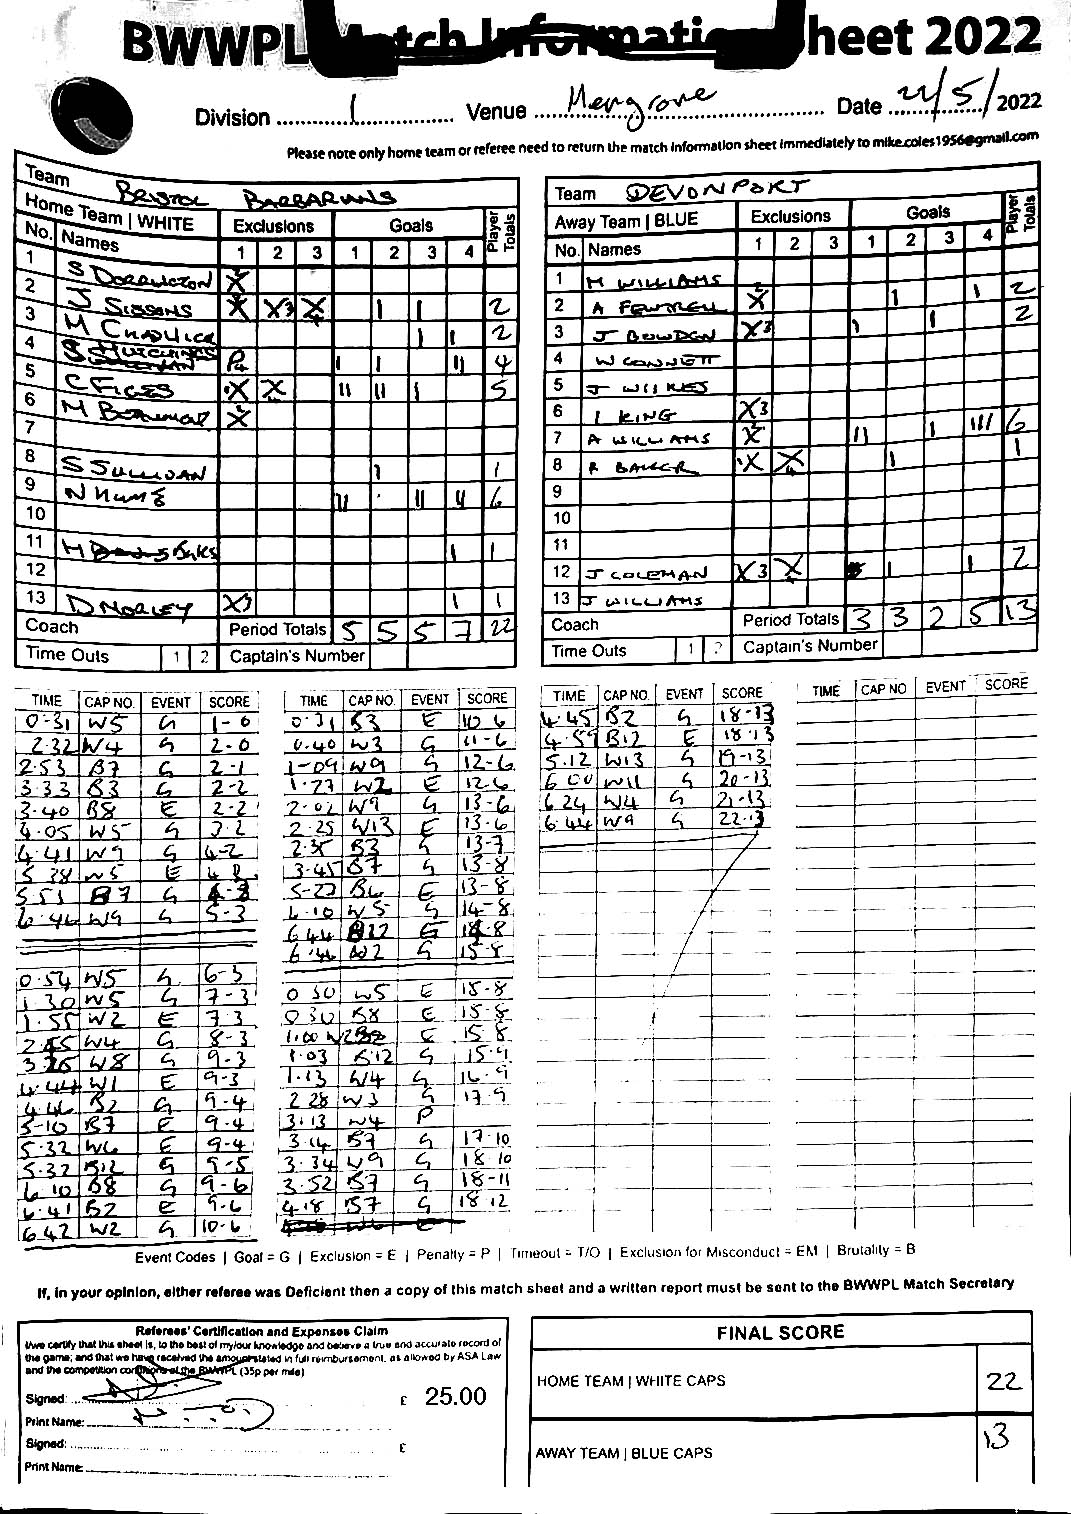 BWWPL Match Information Sheet 2022
Division 1 Venue Hengrove Date 22/5/2022
Please note only home team or referee need to return the match information sheet immediately to mike.coles1956@gmail.com
Team BRISTOL BARBARIANS
Home Team | WHITE Exclusions Goals Player Totals
No. Names 1 2 3 1 2 3 4
1 S DORRINGTON X
2 J SISSONS X X3 X4 1 1 2
3 M CHADWICK 1 1 2
4 S HUTCHINGS P4 1 1 11 4
5 C FICES X X 11 11 1 5
6 M X
7
8 S SULLIVAN 1 1
9 N HUME 11 11 11 6
10
11 H 1 1
12
13 D MORLEY X3 1 1
Coach Period Totals 5 5 5 7 22
Time Outs 1 2 Captain's Number
Team DEVONPORT
Away Team | BLUE Exclusions Goals Player Totals
No. Names 1 2 3 1 2 3 4
1 M WILLIAMS
2 A FEWTRELL X 1 1 2
3 J BOWDEN X3 1 1 2
4 W CONNETT
5 J WILKES
6 I KING X3
7 A WILLIAMS X 11 1 111 6
8 R BAKER X X 1 1
9
10
11
12 J COLEMAN X3 X4 1 1 2
13 J WILLIAMS
Coach Period Totals 3 3 2 5 13
Time Outs 1 2 Captain's Number
TIME CAP NO. EVENT SCORE
0-31 W5 G 1-0
2.32 W4 G 2-0
2-53 B7 G 2-1
3-33 B3 G 2-2
3-40 B8 E 2-2
4-05 W5 G 3-2
4-41 W9 G 4-2
5 38 W5 E 4 2
5 51 B7 G 4-3
6-46 W9 G 5-3
0-54 W5 G 6-3
1 30 W5 G 7-3
1-55 W2 E 7 3
2 45 W4 G 8-3
3 26 W8 G 9-3
4-44 W1 E 9-3
4-46 B2 G 9-4
5-10 B7 E 9-4
5-32 W6 E 9-4
5-32 B12 G 9-5
6 10 B8 G 9-6
6-41 B2 E 9-6
6 42 W2 G 10-6
TIME CAP NO. EVENT SCORE
0-31 B3 E 10 6
0.40 W3 G 11-6
1-09 W9 G 12-6
1-27 W2 E 12 6
2-02 W9 G 13-6
2-25 W13 E 13-6
2-35 B3 G 13-7
3-45 B7 G 13-8
5-22 B6 E 13-8
6-10 W5 G 14-8
6 44 B12 E 14-8
6-46 W2 G 15-8
0 30 W5 E 15-8
0 30 B8 E 15-8
1:00 W2 E 15 8
1-03 B12 G 15-9
1-13 W4 G 16-9
2 28 W3 G 17-9
3-13 W4 P
3-14 B7 G 17-10
3-34 W9 G 18 10
3-52 B7 G 18-11
4-18 B7 G 18 12
TIME CAP NO. EVENT SCORE
4-45 B2 G 18-13
4-59 B12 E 18-13
5.12 W13 G 19-13
6 00 W11 G 20-13
6 24 W4 G 21-13
6-44 W9 G 22-13
TIME CAP NO EVENT SCORE
Event Codes | Goal = G | Exclusion = E | Penalty = P | Timeout = T/O | Exclusion for Misconduct = EM | Brutality = B
If, in your opinion, either referee was Deficient then a copy of this match sheet and a written report must be sent to the BWWPL Match Secretary
Referees' Certification and Expenses Claim
I/we certify that this sheet is, to the best of my/our knowledge and believe a true and accurate record of
the game; and that we have received the amount stated in full reimbursement, as allowed by ASA Law
and the competition conditions of the BWWPL (35p per mile)
Signed: £ 25.00
Print Name:
Signed: £
Print Name:
FINAL SCORE
HOME TEAM | WHITE CAPS 22
AWAY TEAM | BLUE CAPS 13